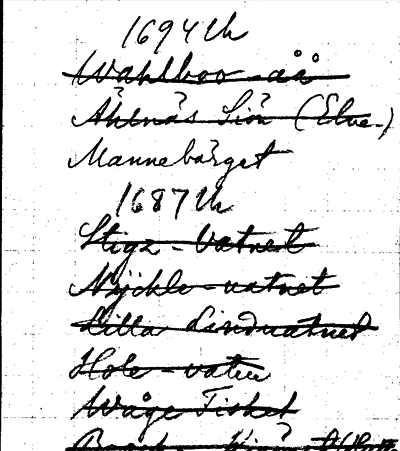 1694 Uh
Wahlboo-åå
Åhlnäs Siön (Elne-)
Mannebärget
1687 Uh
Stigz-Vatnet
Nyckle-vatnet
Lilla Lindvatnet
Hole-vatn
Wåge Fisket